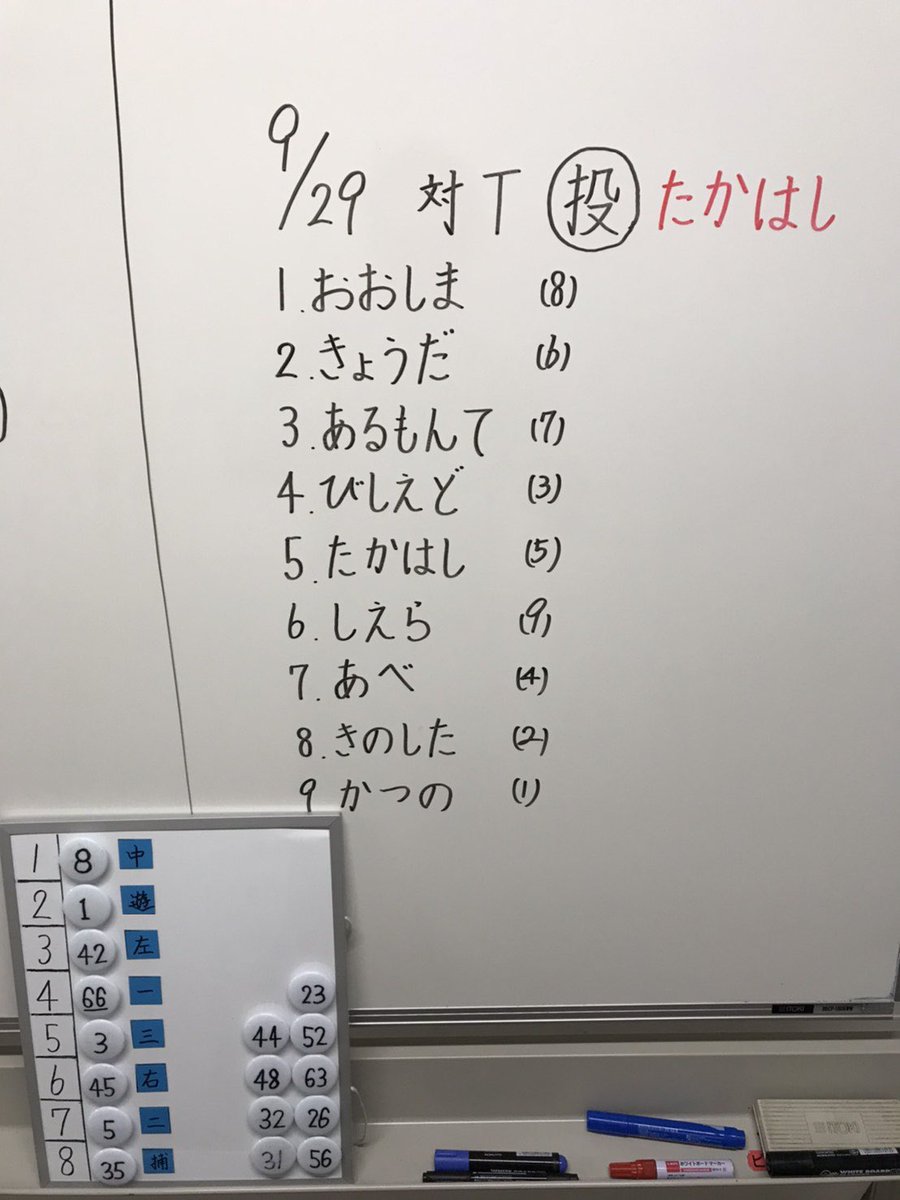 9/29 対T 投 たかはし
1.おおしま (8)
2.きょうだ (6)
3.あるもんて (7)
4.びしえど (3)
5.たかはし (5)
6.しえら (9)
7.あべ (4)
8.きのした (2)
9 かつの (1)
1 8 中
2 1 遊
3 42 左
4 66 一 23
5 3 三 44 52
6 45 右 48 63
7 5 二 32 26
8 35 捕 31 56
ホワイトボードマーカー
WHITE BOARD